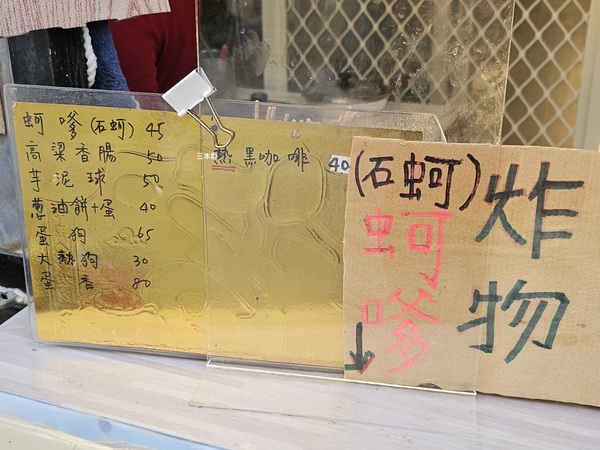 蚵嗲(石蚵) 45
高梁香腸 50
芋泥球 50
蔥油餅+蛋 40
蛋狗 65
大熱狗 30
蛋香 80
熱黑咖啡 40
(石蚵)
蚵嗲
炸物